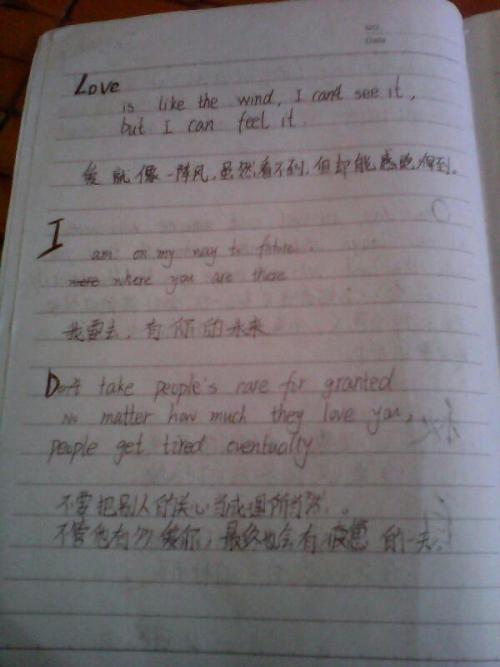 NO.
Date
Love
is like the wind, I can't see it,
but I can feel it
爱就像一阵风,虽然看不到,但却能感觉得到。
I
am on my way to future.
where you are there
我要去,有你的未来
Don't take people's care for granted
No matter how much they love you,
people get tired eventually
不要把别人的关心当成理所当然。
不管他有多爱你,最终也会有疲惫的一天。